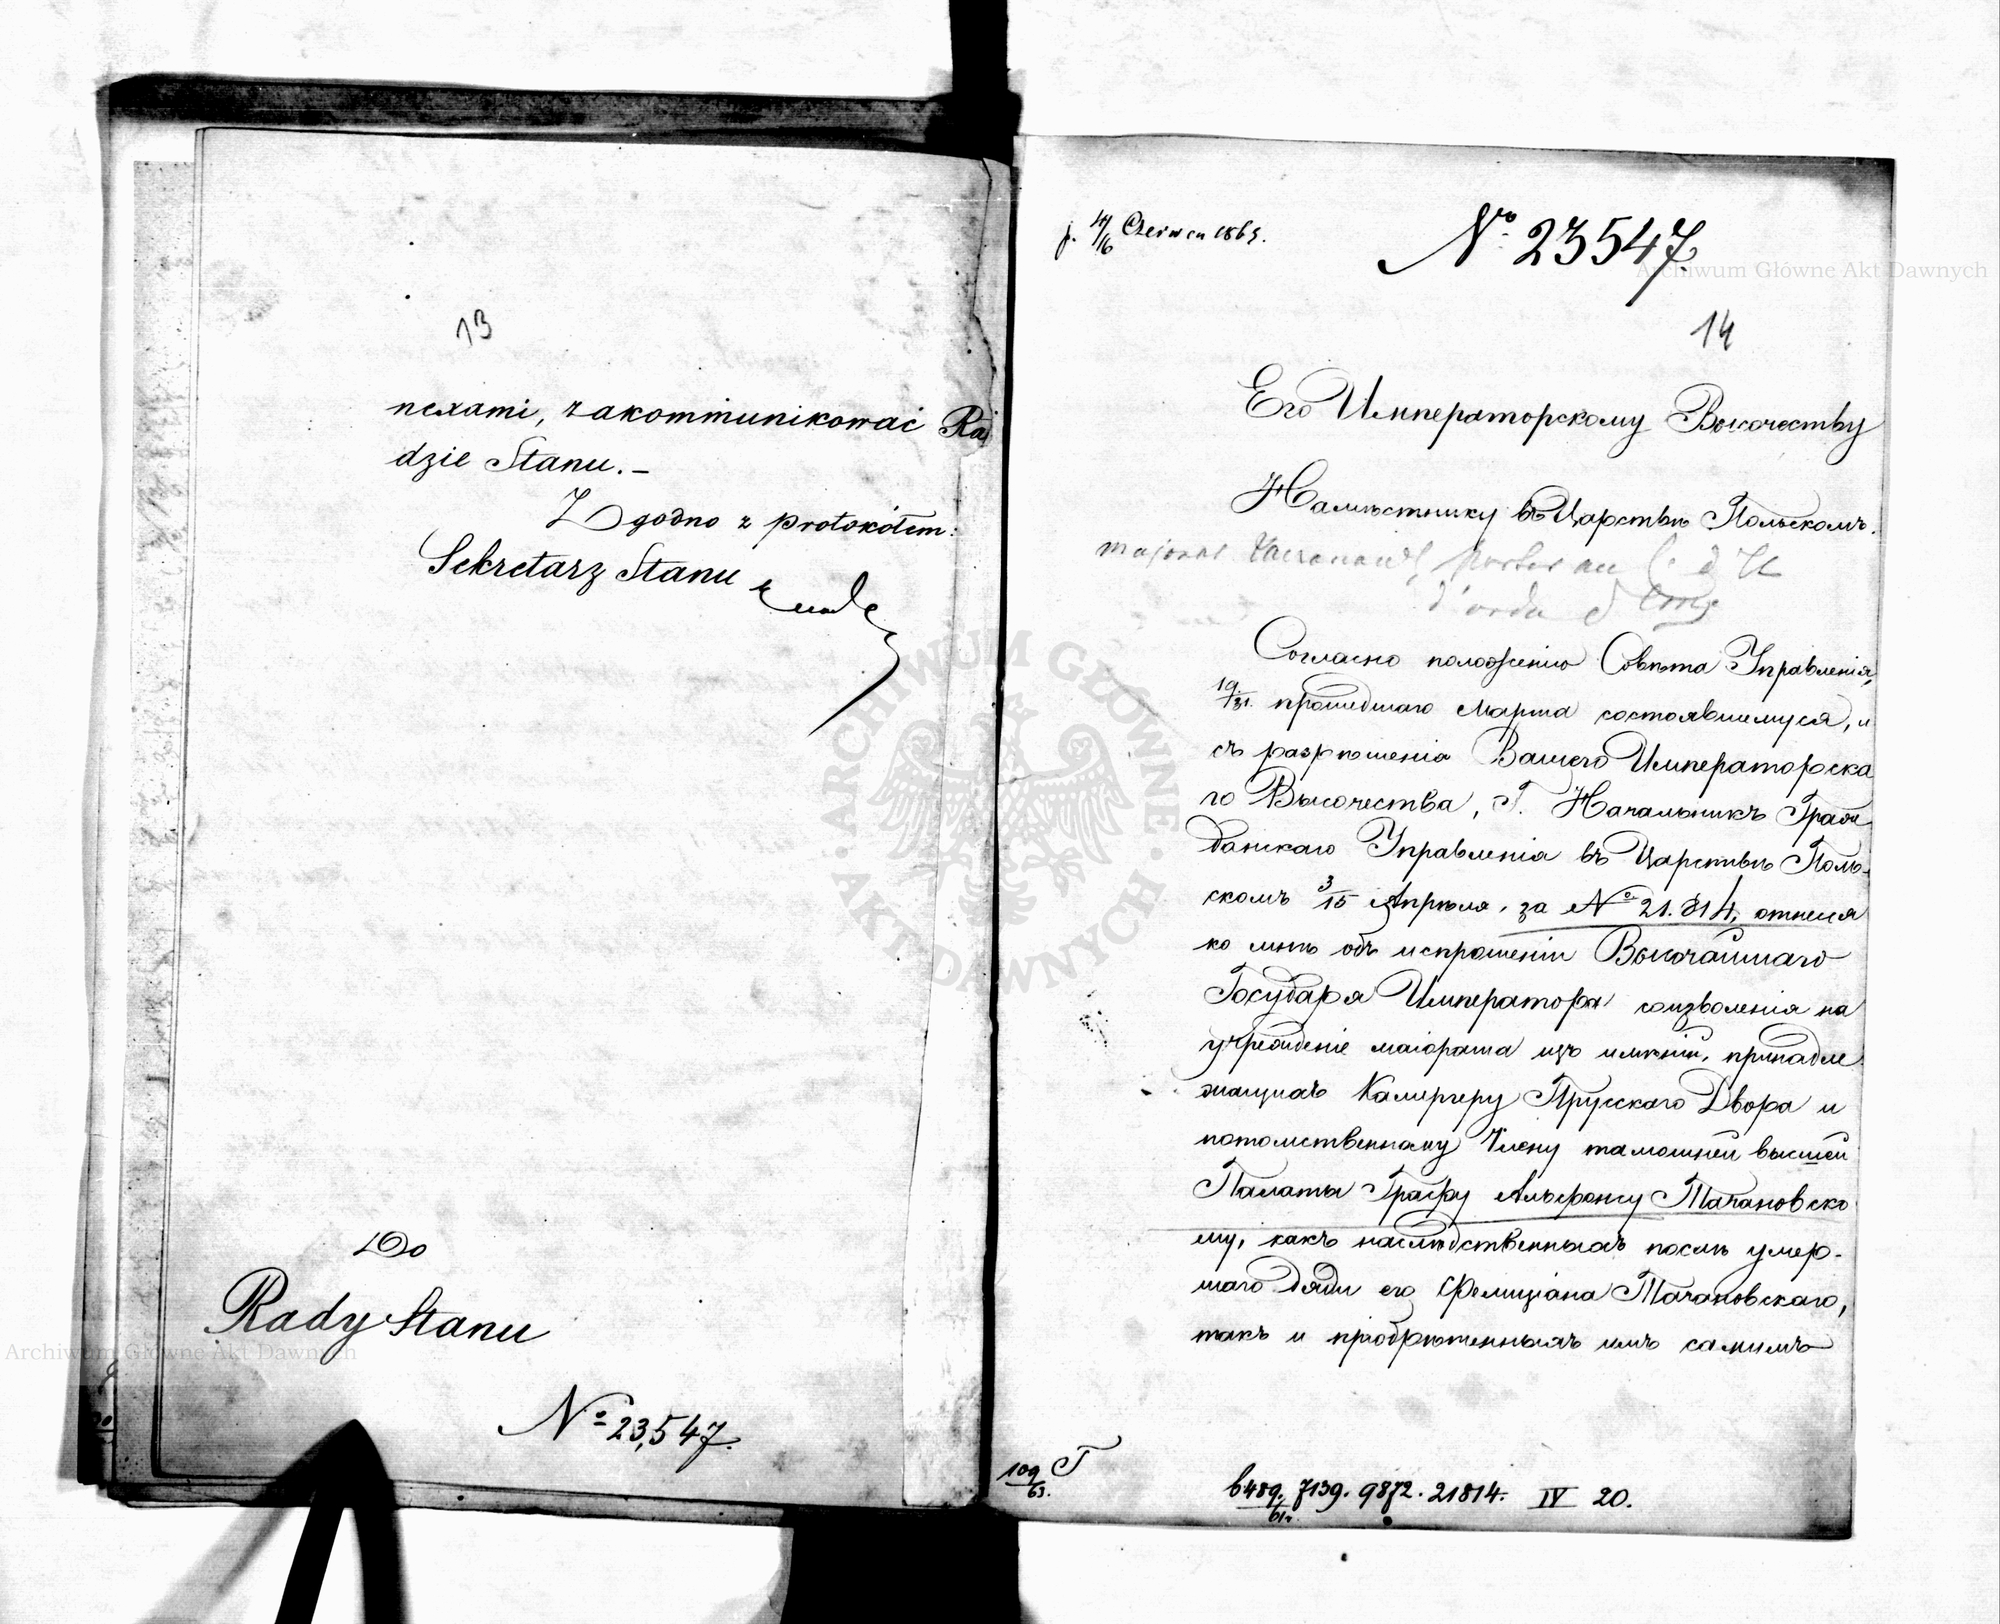 13
nexami, zakommunikować Ra
dzie Stanu. –
Zgodno z protokółem:
Sekretarz Stanu
Do
Rady Stanu
№ 23,547.
p. 4/16 Czerwca 1863.
№ 23547.
14
Его Императорскому Высочеству
Намѣстнику въ Царствѣ Польскомъ.
majorat
Согласно положенію Совѣта Управленія,
19/31. прошедшаго Марта состоявшемуся, и
съ разрѣшенія Вашего Императорска
го Высочества, Г. Начальникъ Граж
данскаго Управленія въ Царствѣ Поль-
скомъ 3/15 Апрѣля, за № 21.814, отнесся
ко мнѣ объ испрошеніи Высочайшаго
Государя Императора соизволенія на
учрежденіе маіората изъ имѣній, принадле
жащихъ Камергеру Прусскаго Двора и
потомственному Члену тамошней высшей
Палаты Графу Альфонсу Тачановско
му, какъ наслѣдственныхъ послѣ умер-
шаго дяди его Фелиціана Тачановскаго,
такъ и пріобрѣтенныхъ имъ самимъ
109/63. Г
6489/61. 7139. 9872. 21814. IV 20.
ARCHIWUM GŁÓWNE AKT DAWNYCH
Archiwum Główne Akt Dawnych
Archiwum Główne Akt Dawnych